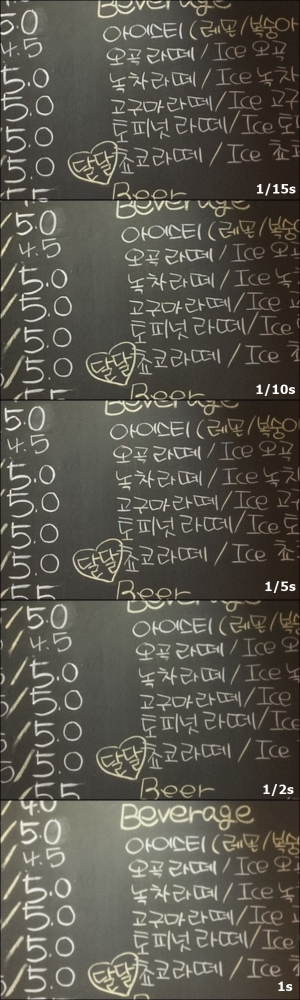 Beverage
5.0 아이스티 (레몬/복숭아
4.5 오곡라떼 / Ice 오곡
5.0 녹차라떼 / Ice 녹차
5.0 고구마라떼 / Ice 고구
5.0 토피넛 라떼 / Ice 토
5.0 달달 쵸코라떼 / Ice 쵸코
Beer
1/15s
Beverage
5.0 아이스티 (레몬/복숭
4.5 오곡라떼 / Ice 오곡
5.0 녹차라떼 / Ice 녹
5.0 고구마라떼 / Ice
5.0 토피넛 라떼 / Ice
5.0 달달 쵸코라떼 / Ice 쵸
Beer
1/10s
Beverage
5.0 아이스티 (레몬/복숭아
4.5 오곡라떼 / Ice 오곡
5.0 녹차라떼 / Ice 녹차
5.0 고구마라떼 / Ice 고구
5.0 토피넛 라떼 / Ice 토
5.0 달달 쵸코라떼 / Ice 쵸
Beer
1/5s
Beverage
5.0 아이스티 (레몬/복
4.5 오곡라떼 / Ice 오
5.0 녹차라떼 / Ice
5.0 고구마라떼 / Ice
5.0 토피넛 라떼 / Ice
5.0 달달 쵸코라떼 / Ice
Beer
1/2s
4.0 Beverage
5.0 아이스티 (레몬/복숭
4.5 오곡라떼 / Ice 오곡
5.0 녹차라떼 / Ice 녹
5.0 고구마라떼 / Ice
5.0 토피넛 라떼 / Ice
5.0 달달 쵸코라떼 / Ice
1s